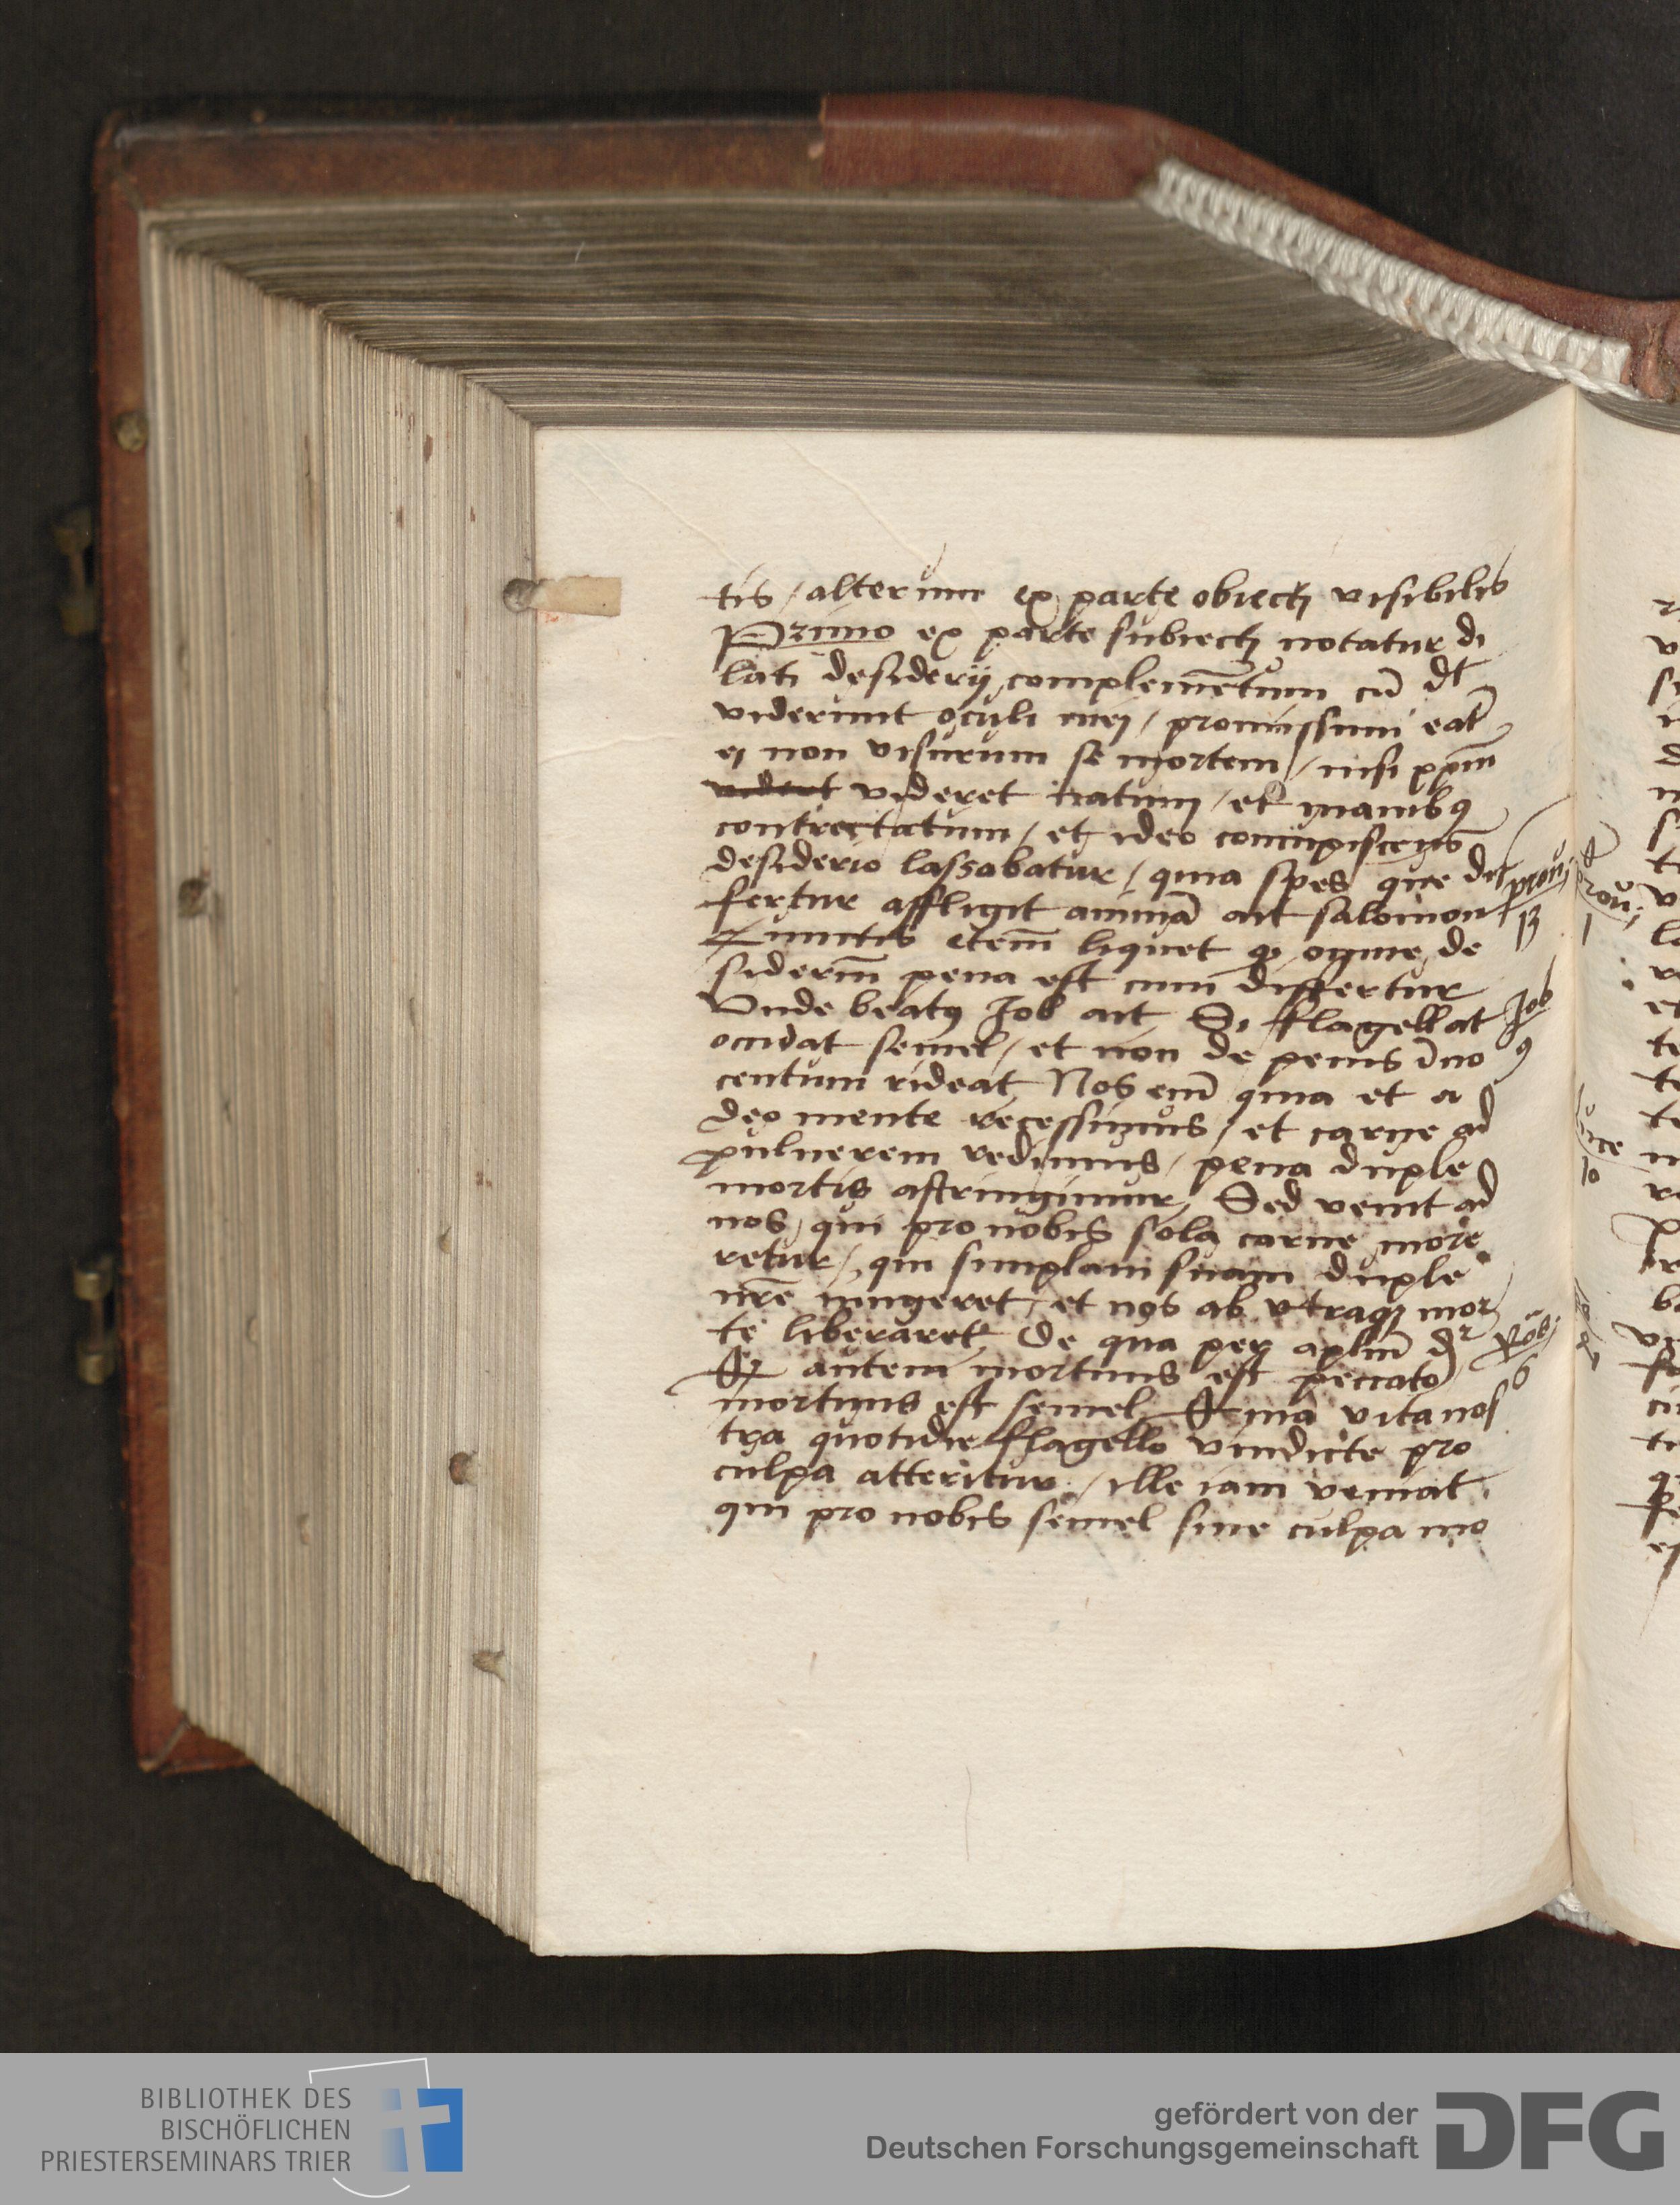 tis / alterum ex parte obiecti visibilis
Primo ex parte subiecti notatur di
lati desiderij complemētum cū dt
viderunt oculi mei / promissum eat
ei non visurum se mortem / nisi xpm
videret natum / et manibꝯ
contrectatum / et ideo concupiscens
desiderio lassabatur / quia spes que dif
fertur affligit animā ait salomon
Cunctis etem liquet ꝙ omne de
siderium pena est cum differtur
Unde beatꝯ Job ait Si flagellat
occidat semel / et non de penis īno
centum rideat Nos enī quia et a
deo mente recessimus / et carne ad
puluerem redimus / pena duple
mortis astringimur Sed venit ad
nos / qui pro nobis sola carne more
retur / qui simplam suam duple
nr̄e iungeret / et nos ab vtraqꝫ mor
te liberaret De qua per aplm̄ dr
autem mortuus est peccato
mortuus est semel Quia vita nos
tra quotidie flagello vindicte pro
culpa atteritur / ille iam veniat
qui pro nobis semel sine culpa mo
prou
13
Job
9
Ro
6
BIBLIOTHEK DES
BISCHÖFLICHEN
PRIESTERSEMINARS TRIER
gefördert von der
Deutschen Forschungsgemeinschaft
DFG